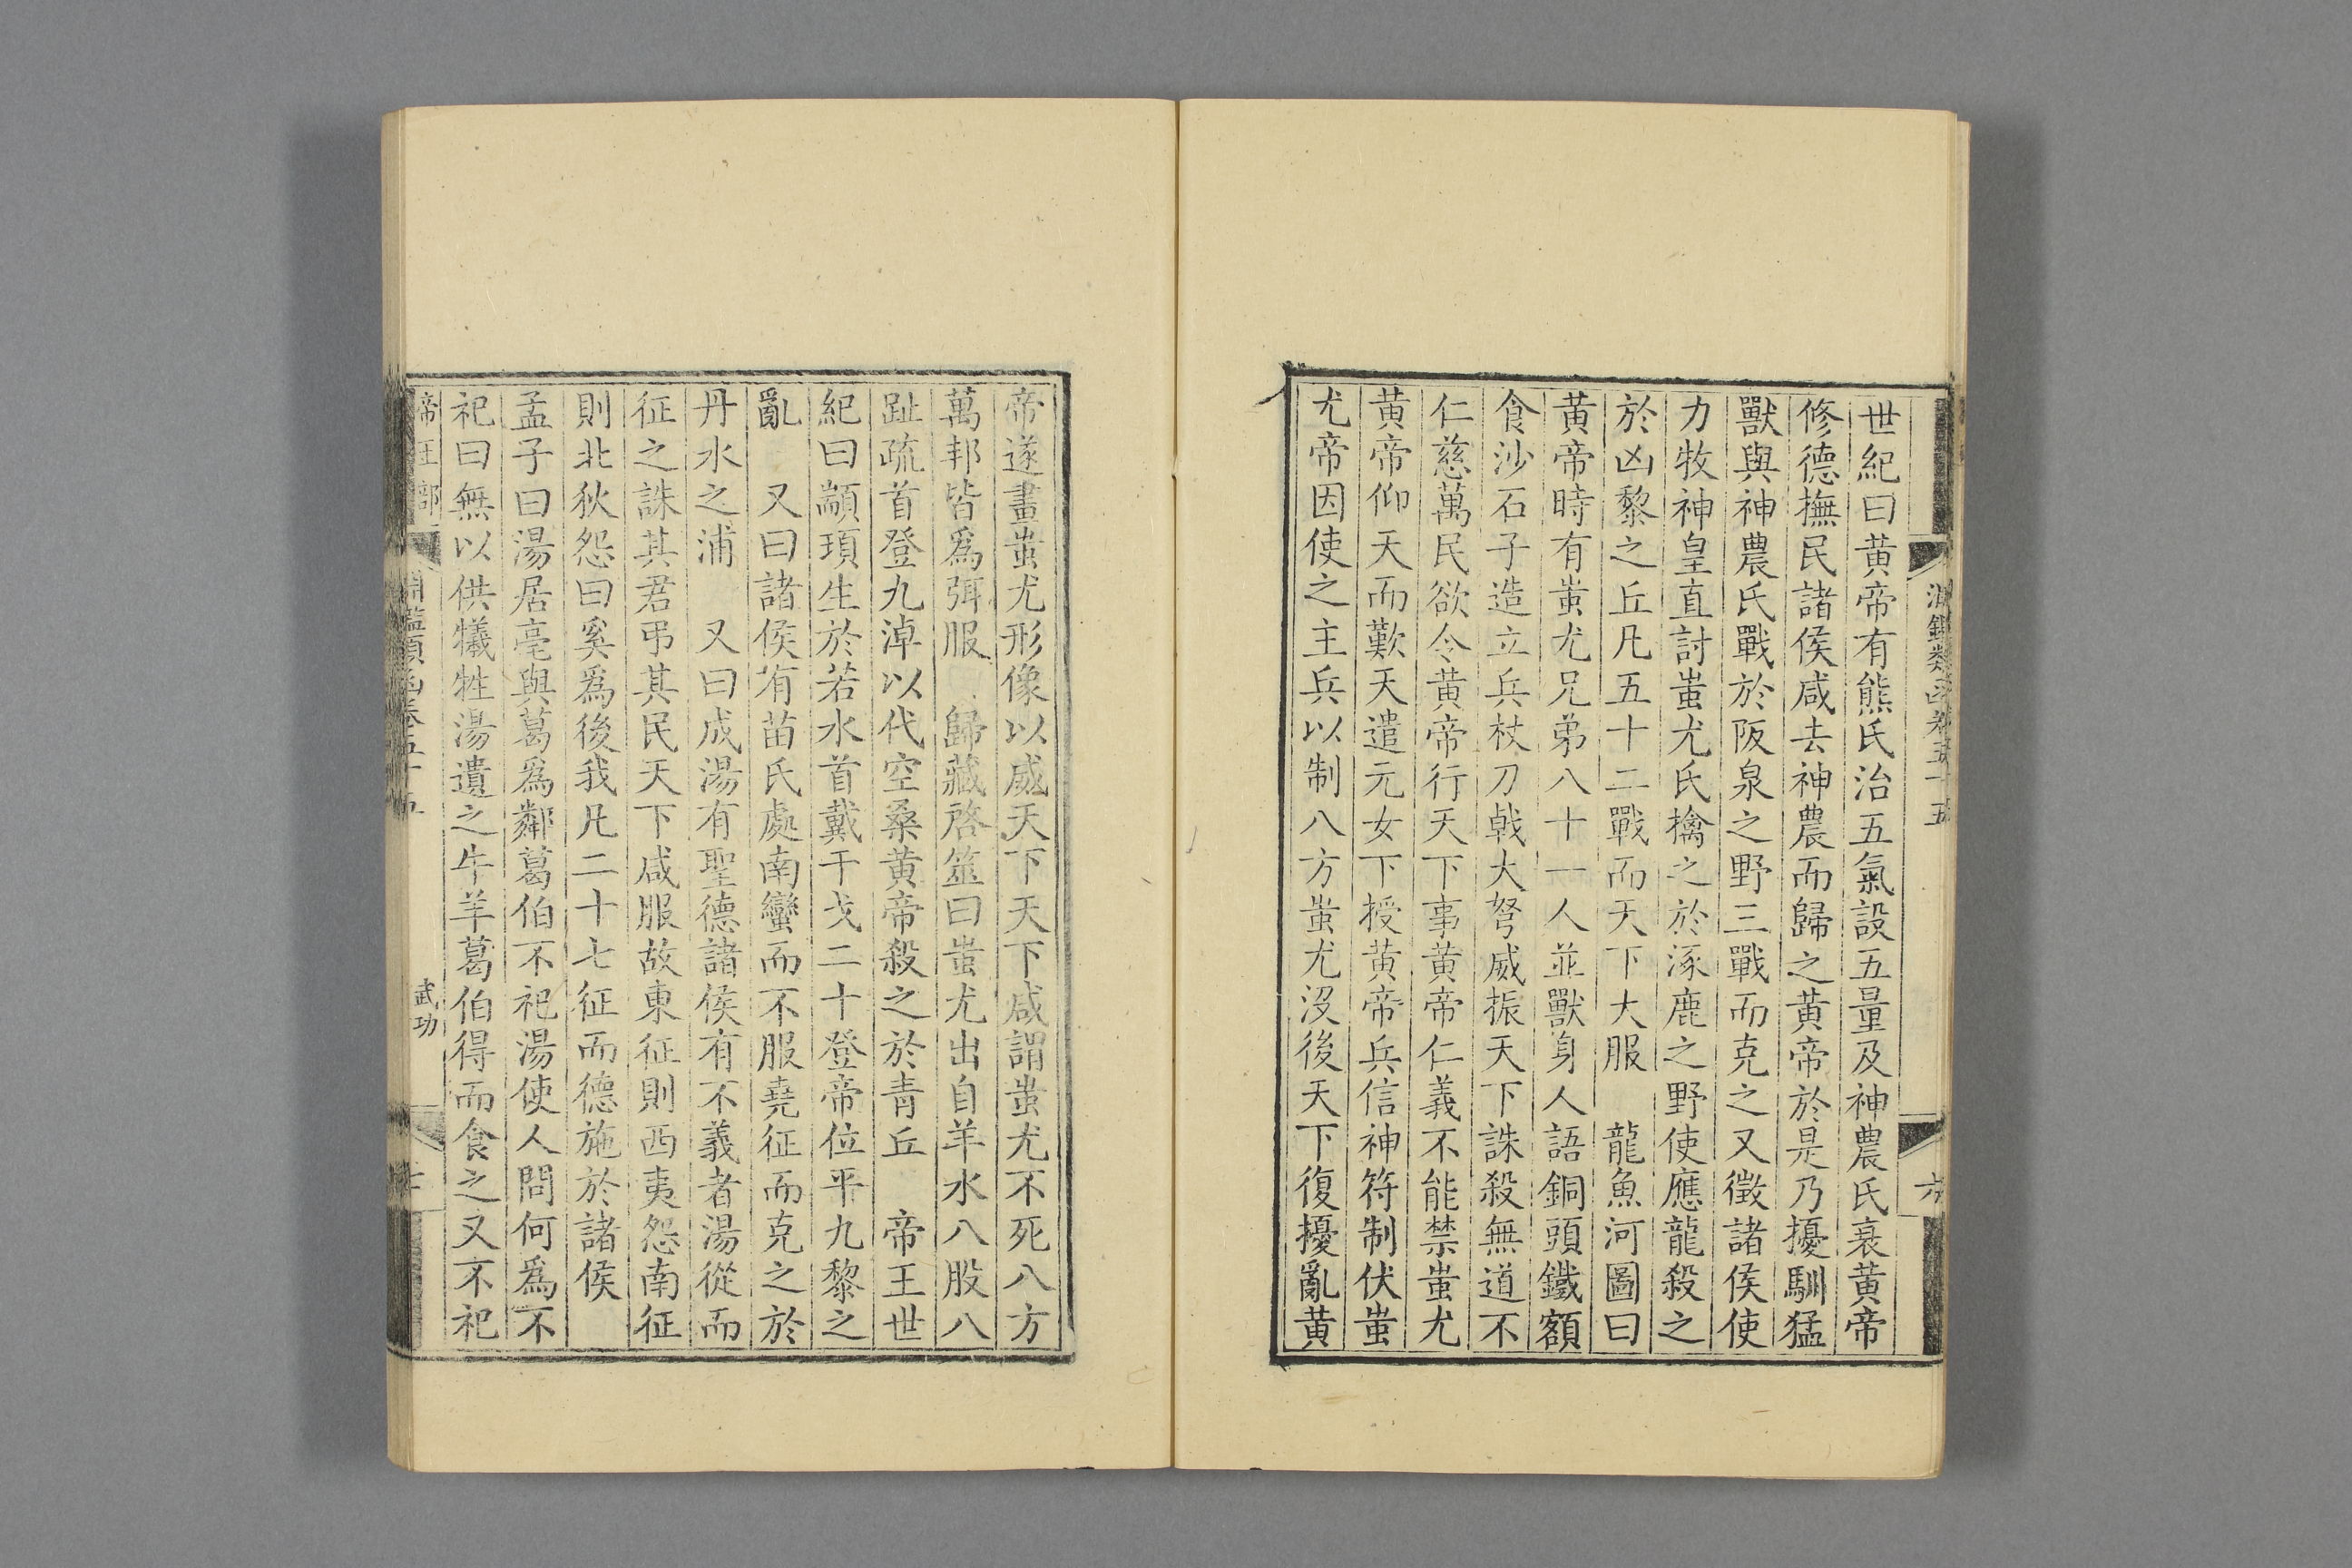 世紀曰黄帝有熊氏治五氣設五量及神農氏衰黄帝
修德撫民諸侯咸去神農而歸之黄帝於是乃擾馴猛
獸與神農氏戰於阪泉之野三戰而克之又徵諸侯使
力牧神皇直討蚩尤氏擒之於涿鹿之野使應龍殺之
於凶黎之丘凡五十二戰而天下大服　龍魚河圖曰
黄帝時有蚩尤兄弟八十一人並獸身人語銅頭鐵額
食沙石子造立兵杖刀戟大弩威振天下誅殺無道不
仁慈萬民欲令黄帝行天下事黄帝仁義不能禁蚩尤
黄帝仰天而歎天遣元女下授黄帝兵信神符制伏蚩
尤帝因使之主兵以制八方蚩尤没後天下復擾亂黄
六
帝遂畫蚩尤形像以威天下天下咸謂蚩尤不死八方
萬邦皆爲弭服　歸藏啓筮曰蚩尤出自羊水八股八
趾疏首登九淖以代空桑黄帝殺之於青丘　帝王世
紀曰顓頊生於若水首戴干戈二十登帝位平九黎之
亂　又曰諸侯有苗氏處南蠻而不服堯征而克之於
丹水之浦　又曰成湯有聖德諸侯有不義者湯從而
征之誅其君弔其民天下咸服故東征則西夷怨南征
則北狄怨曰奚爲後我凡二十七征而德施於諸侯
孟子曰湯居亳與葛爲鄰葛伯不祀湯使人問何爲不
祀曰無以供犧牲湯遺之牛羊葛伯得而食之又不祀
帝王部
武功